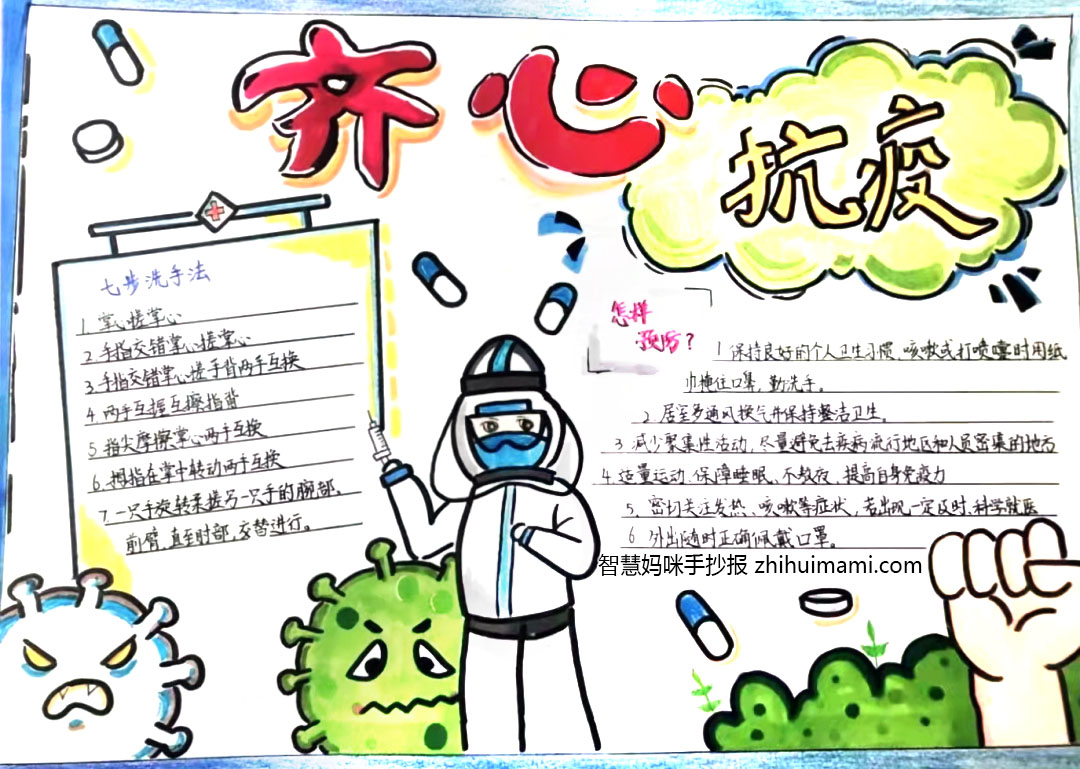 齐心
抗疫
七步洗手法
1. 掌心搓掌心
2 手指交错掌心搓掌心
3 手指交错掌心搓手背两手互换
4 两手互握互擦指背
5 指尖摩擦掌心两手互换
6. 拇指在掌中转动两手互换
7. 一只手旋转揉搓另一只手的腕部、
前臂,直至肘部,交替进行。
怎样
预防?
1 保持良好的个人卫生习惯、咳嗽或打喷嚏时用纸
巾掩住口鼻,勤洗手。
2 居室多通风换气并保持整洁卫生。
3 减少聚集性活动,尽量避免去疾病流行地区和人员密集的地方
4. 适量运动、保障睡眠、不熬夜、提高自身免疫力
5. 密切关注发热、咳嗽等症状,若出现一定及时、科学就医
6 外出随时正确佩戴口罩。
智慧妈咪手抄报 zhihuimami.com